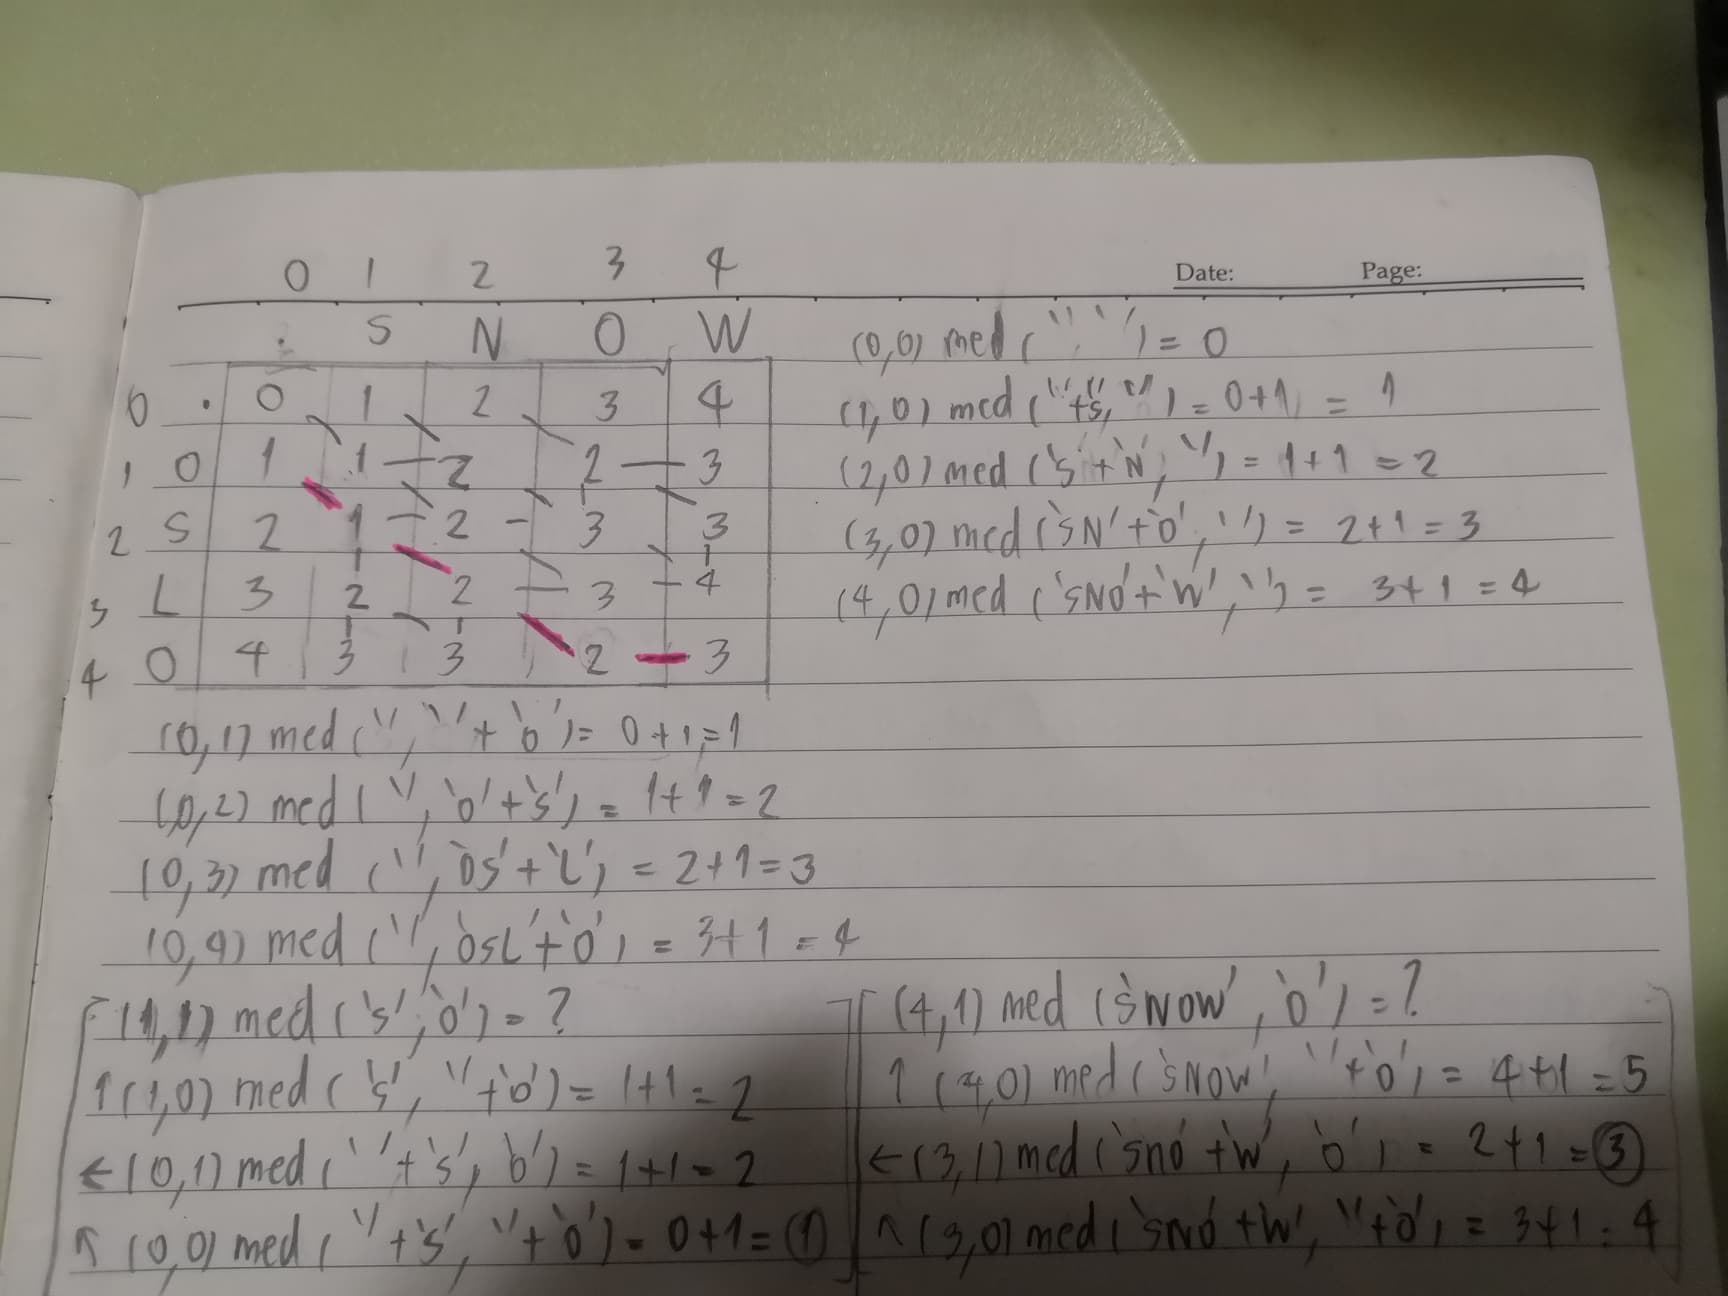 0 1 2 3 4
Date: Page:
. S N O W
0 . 0 1 2 3 4
1 O 1 1 2 2 3
2 S 2 1 2 3 3
3 L 3 2 2 3 4
4 O 4 3 3 2 3
(0,0) med ('', '') = 0
(1,0) med (''+'S', '') = 0+1 = 1
(2,0) med ('S'+'N', '') = 1+1 = 2
(3,0) med ('SN'+'O', '') = 2+1 = 3
(4,0) med ('SNO'+'W', '') = 3+1 = 4
(0,1) med ('', ''+'O') = 0+1 = 1
(0,2) med ('', 'O'+'S') = 1+1 = 2
(0,3) med ('', 'OS'+'L') = 2+1 = 3
(0,4) med ('', 'OSL'+'O') = 3+1 = 4
(1,1) med ('S', 'O') = ?
↑ (1,0) med ('S', ''+'O') = 1+1 = 2
← (0,1) med (''+'S', 'O') = 1+1 = 2
↖ (0,0) med (''+'S', ''+'O') = 0+1 = 1
(4,1) med ('SNOW', 'O') = ?
↑ (4,0) med ('SNOW', ''+'O') = 4+1 = 5
← (3,1) med ('SNO'+'W', 'O') = 2+1 = 3
↖ (3,0) med ('SNO'+'W', ''+'O') = 3+1 = 4